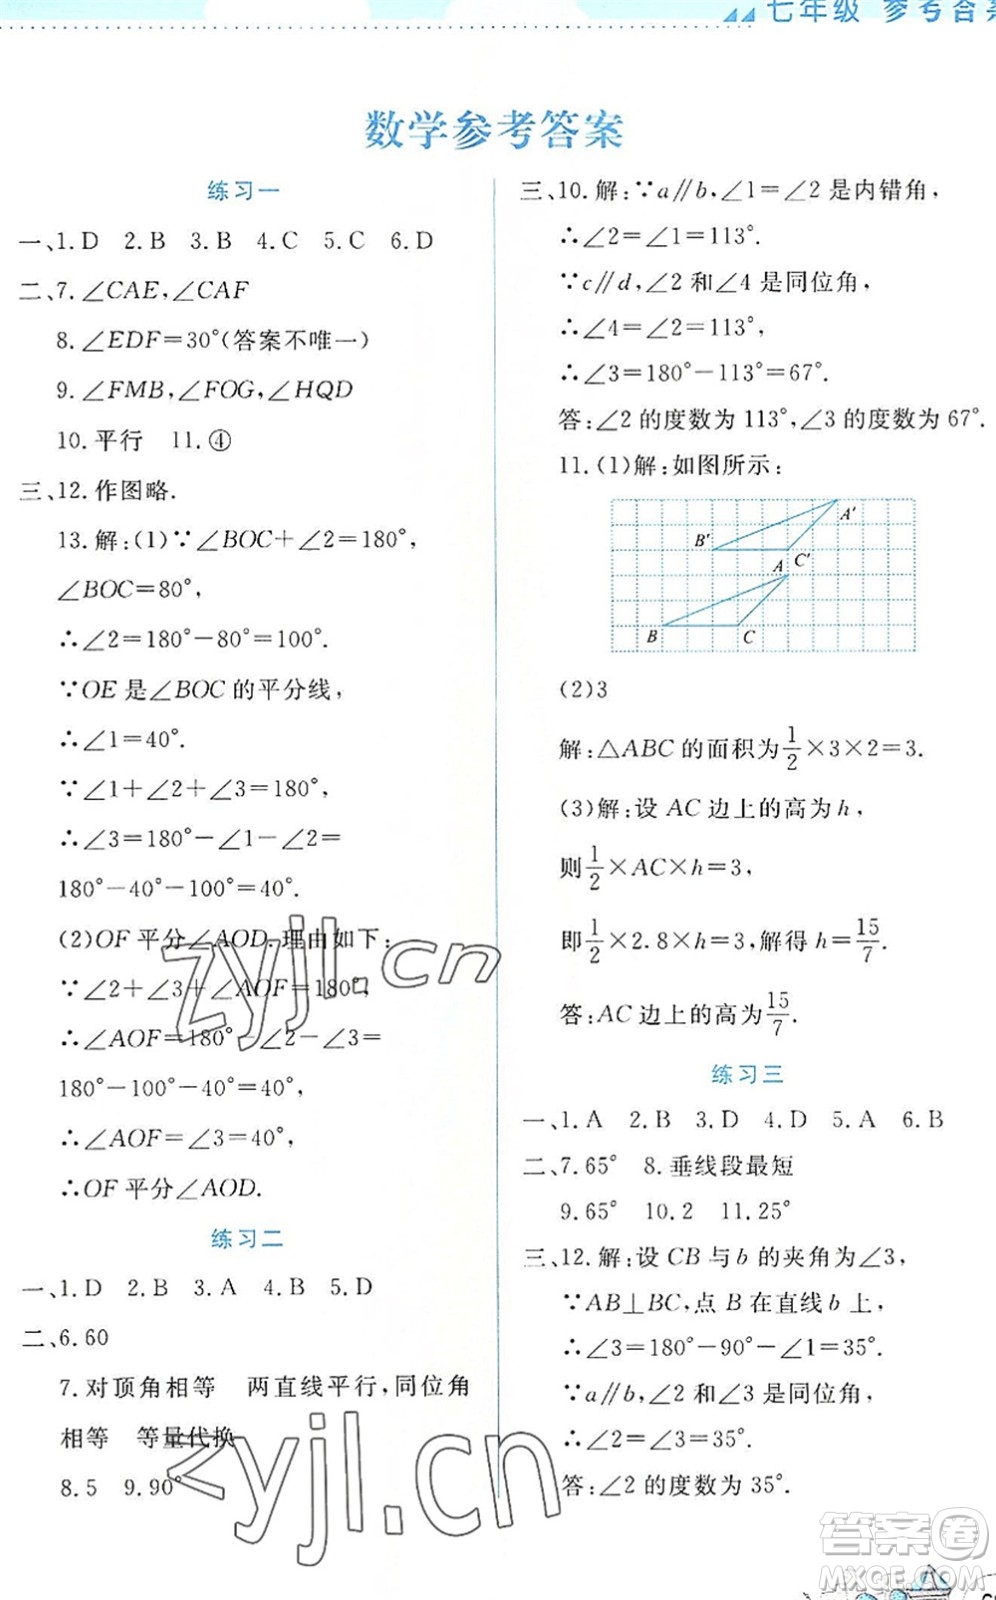 七年级 参考答案
数学参考答案
练习一
一、1. D 2. B 3. B 4. C 5. C 6. D
二、7. ∠CAE,∠CAF
8. ∠EDF=30°(答案不唯一)
9. ∠FMB,∠FOG,∠HQD
10. 平行 11. ④
三、12. 作图略.
13. 解:(1)∵∠BOC+∠2=180°,
∠BOC=80°,
∴∠2=180°-80°=100°.
∵OE是∠BOC的平分线,
∴∠1=40°.
∵∠1+∠2+∠3=180°,
∴∠3=180°-∠1-∠2=
180°-40°-100°=40°.
(2)OF平分∠AOD.理由如下:
∵∠2+∠3+∠AOF=180°,
∴∠AOF=180°-∠2-∠3=
180°-100°-40°=40°,
∴∠AOF=∠3=40°,
∴OF平分∠AOD.
练习二
一、1. D 2. B 3. A 4. B 5. D
二、6. 60
7. 对顶角相等 两直线平行,同位角
相等 等量代换
8. 5 9. 90°
三、10. 解:∵a∥b,∠1=∠2是内错角,
∴∠2=∠1=113°.
∵c∥d,∠2和∠4是同位角,
∴∠4=∠2=113°,
∴∠3=180°-113°=67°.
答:∠2的度数为113°,∠3的度数为67°.
11. (1)解:如图所示:
A′
B′
C′
A
B
C
(2)3
解:△ABC的面积为1/2×3×2=3.
(3)解:设AC边上的高为h,
则1/2×AC×h=3,
即1/2×2.8×h=3,解得h=15/7.
答:AC边上的高为15/7.
练习三
一、1. A 2. B 3. D 4. D 5. A 6. B
二、7. 65° 8. 垂线段最短
9. 65° 10. 2 11. 25°
三、12. 解:设CB与b的夹角为∠3,
∵AB⊥BC,点B在直线b上,
∴∠3=180°-90°-∠1=35°.
∵a∥b,∠2和∠3是同位角,
∴∠2=∠3=35°.
答:∠2的度数为35°.
zyjl.cn
zyjl.cn
答案圈
MXQE.COM